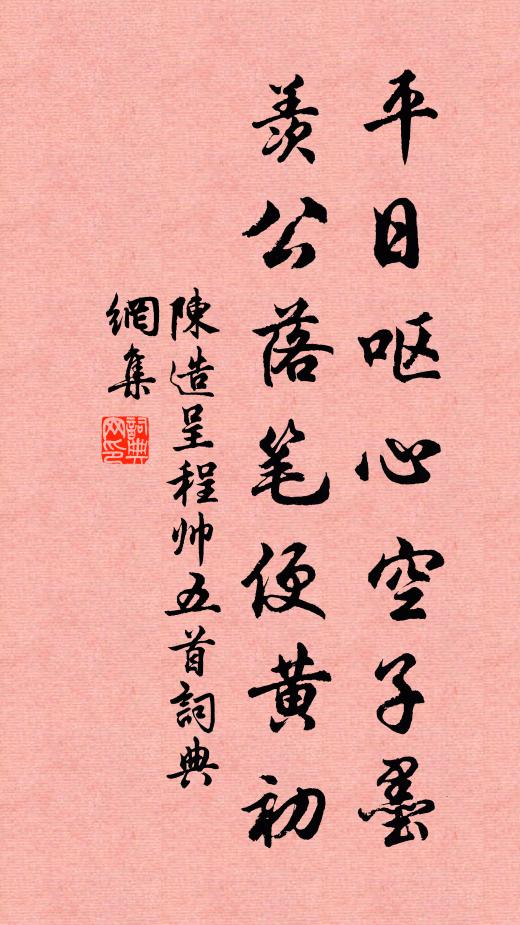 平日呕心空子墨
羨公落笔便黄初
陳造呈程帅五首詞典
網集
詞典网印